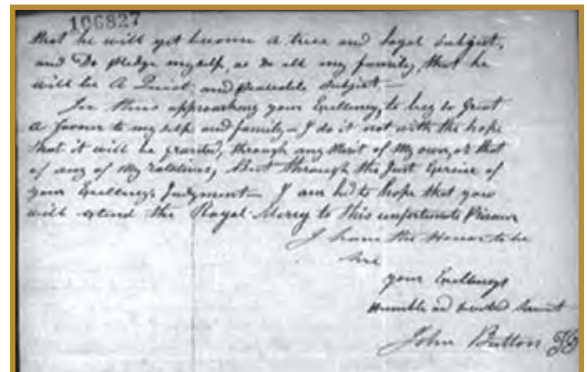 106827
that he will yet become a true and loyal subject,
and Do pledge myself, as do all my family, that he
will be A Quiet, and peaceable Subject—
In thus approaching your Excellency, to beg so great
a favour to my self and family— I do it not with the hope
that it will be granted, through any Merit of My own, or that
of any of My relations, But through the Just Exercise of
your Excellencys Judgment— I am led to hope that you
will extend the Royal Mercy to this unfortunate Prisoner
I have the Honor to be
your Excellencys
Humble Servant
John Button